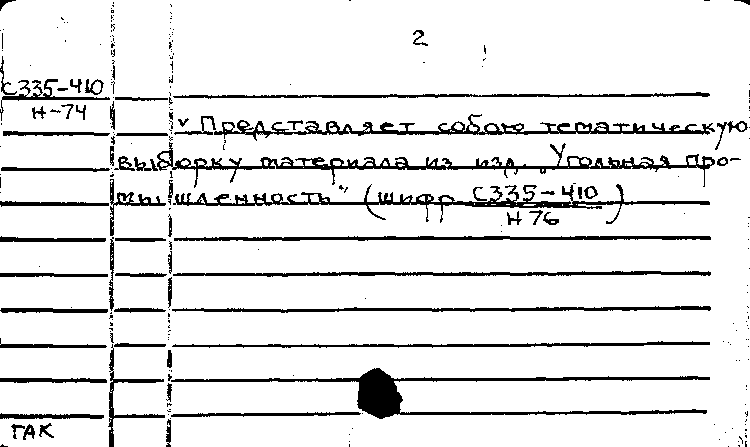 2
С335-410
Н-74
Представляет собою тематическую
выборку материала из изд. „Угольная про-
мышленность" (шифр С335-410
Н76)
ГАК